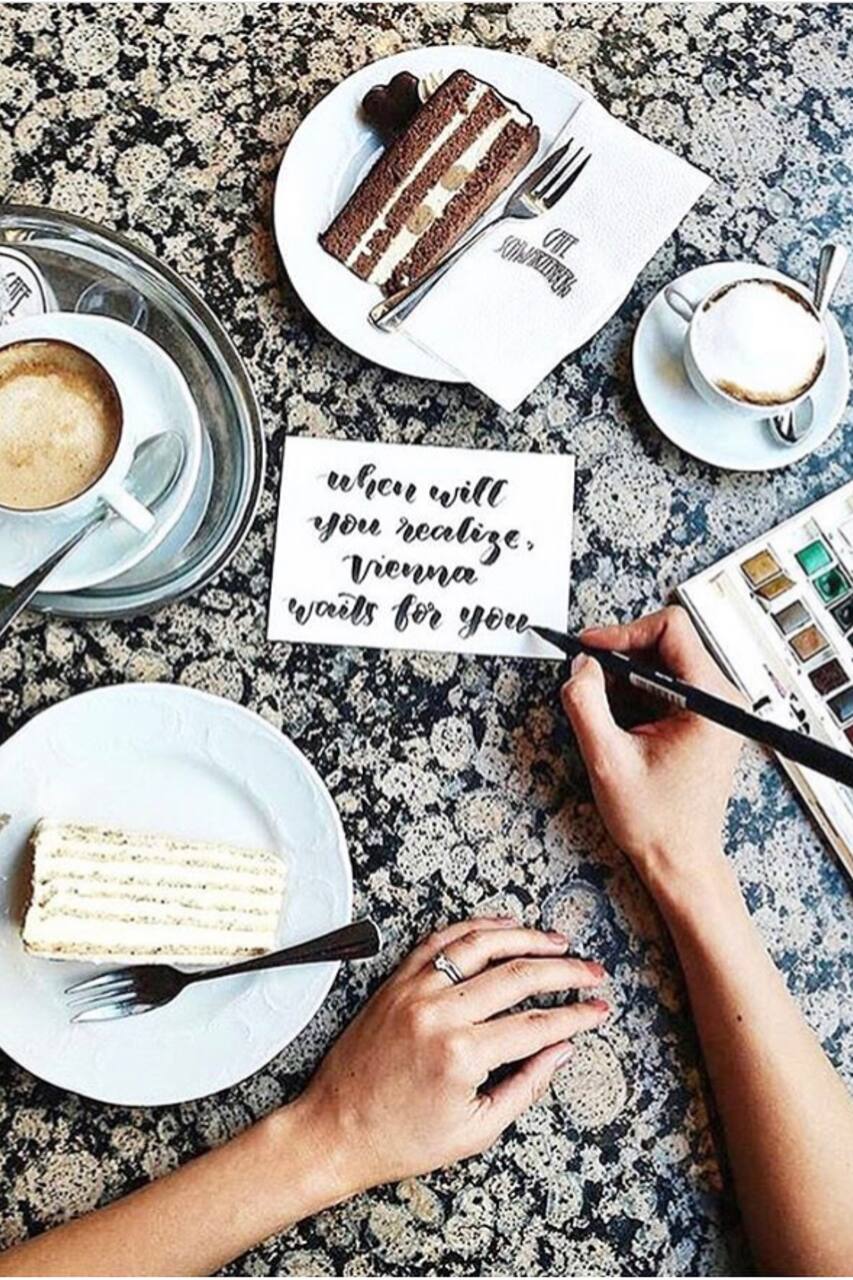 CAFÉ
SCHWARZENBERG
when will
you realize,
Vienna
waits for you